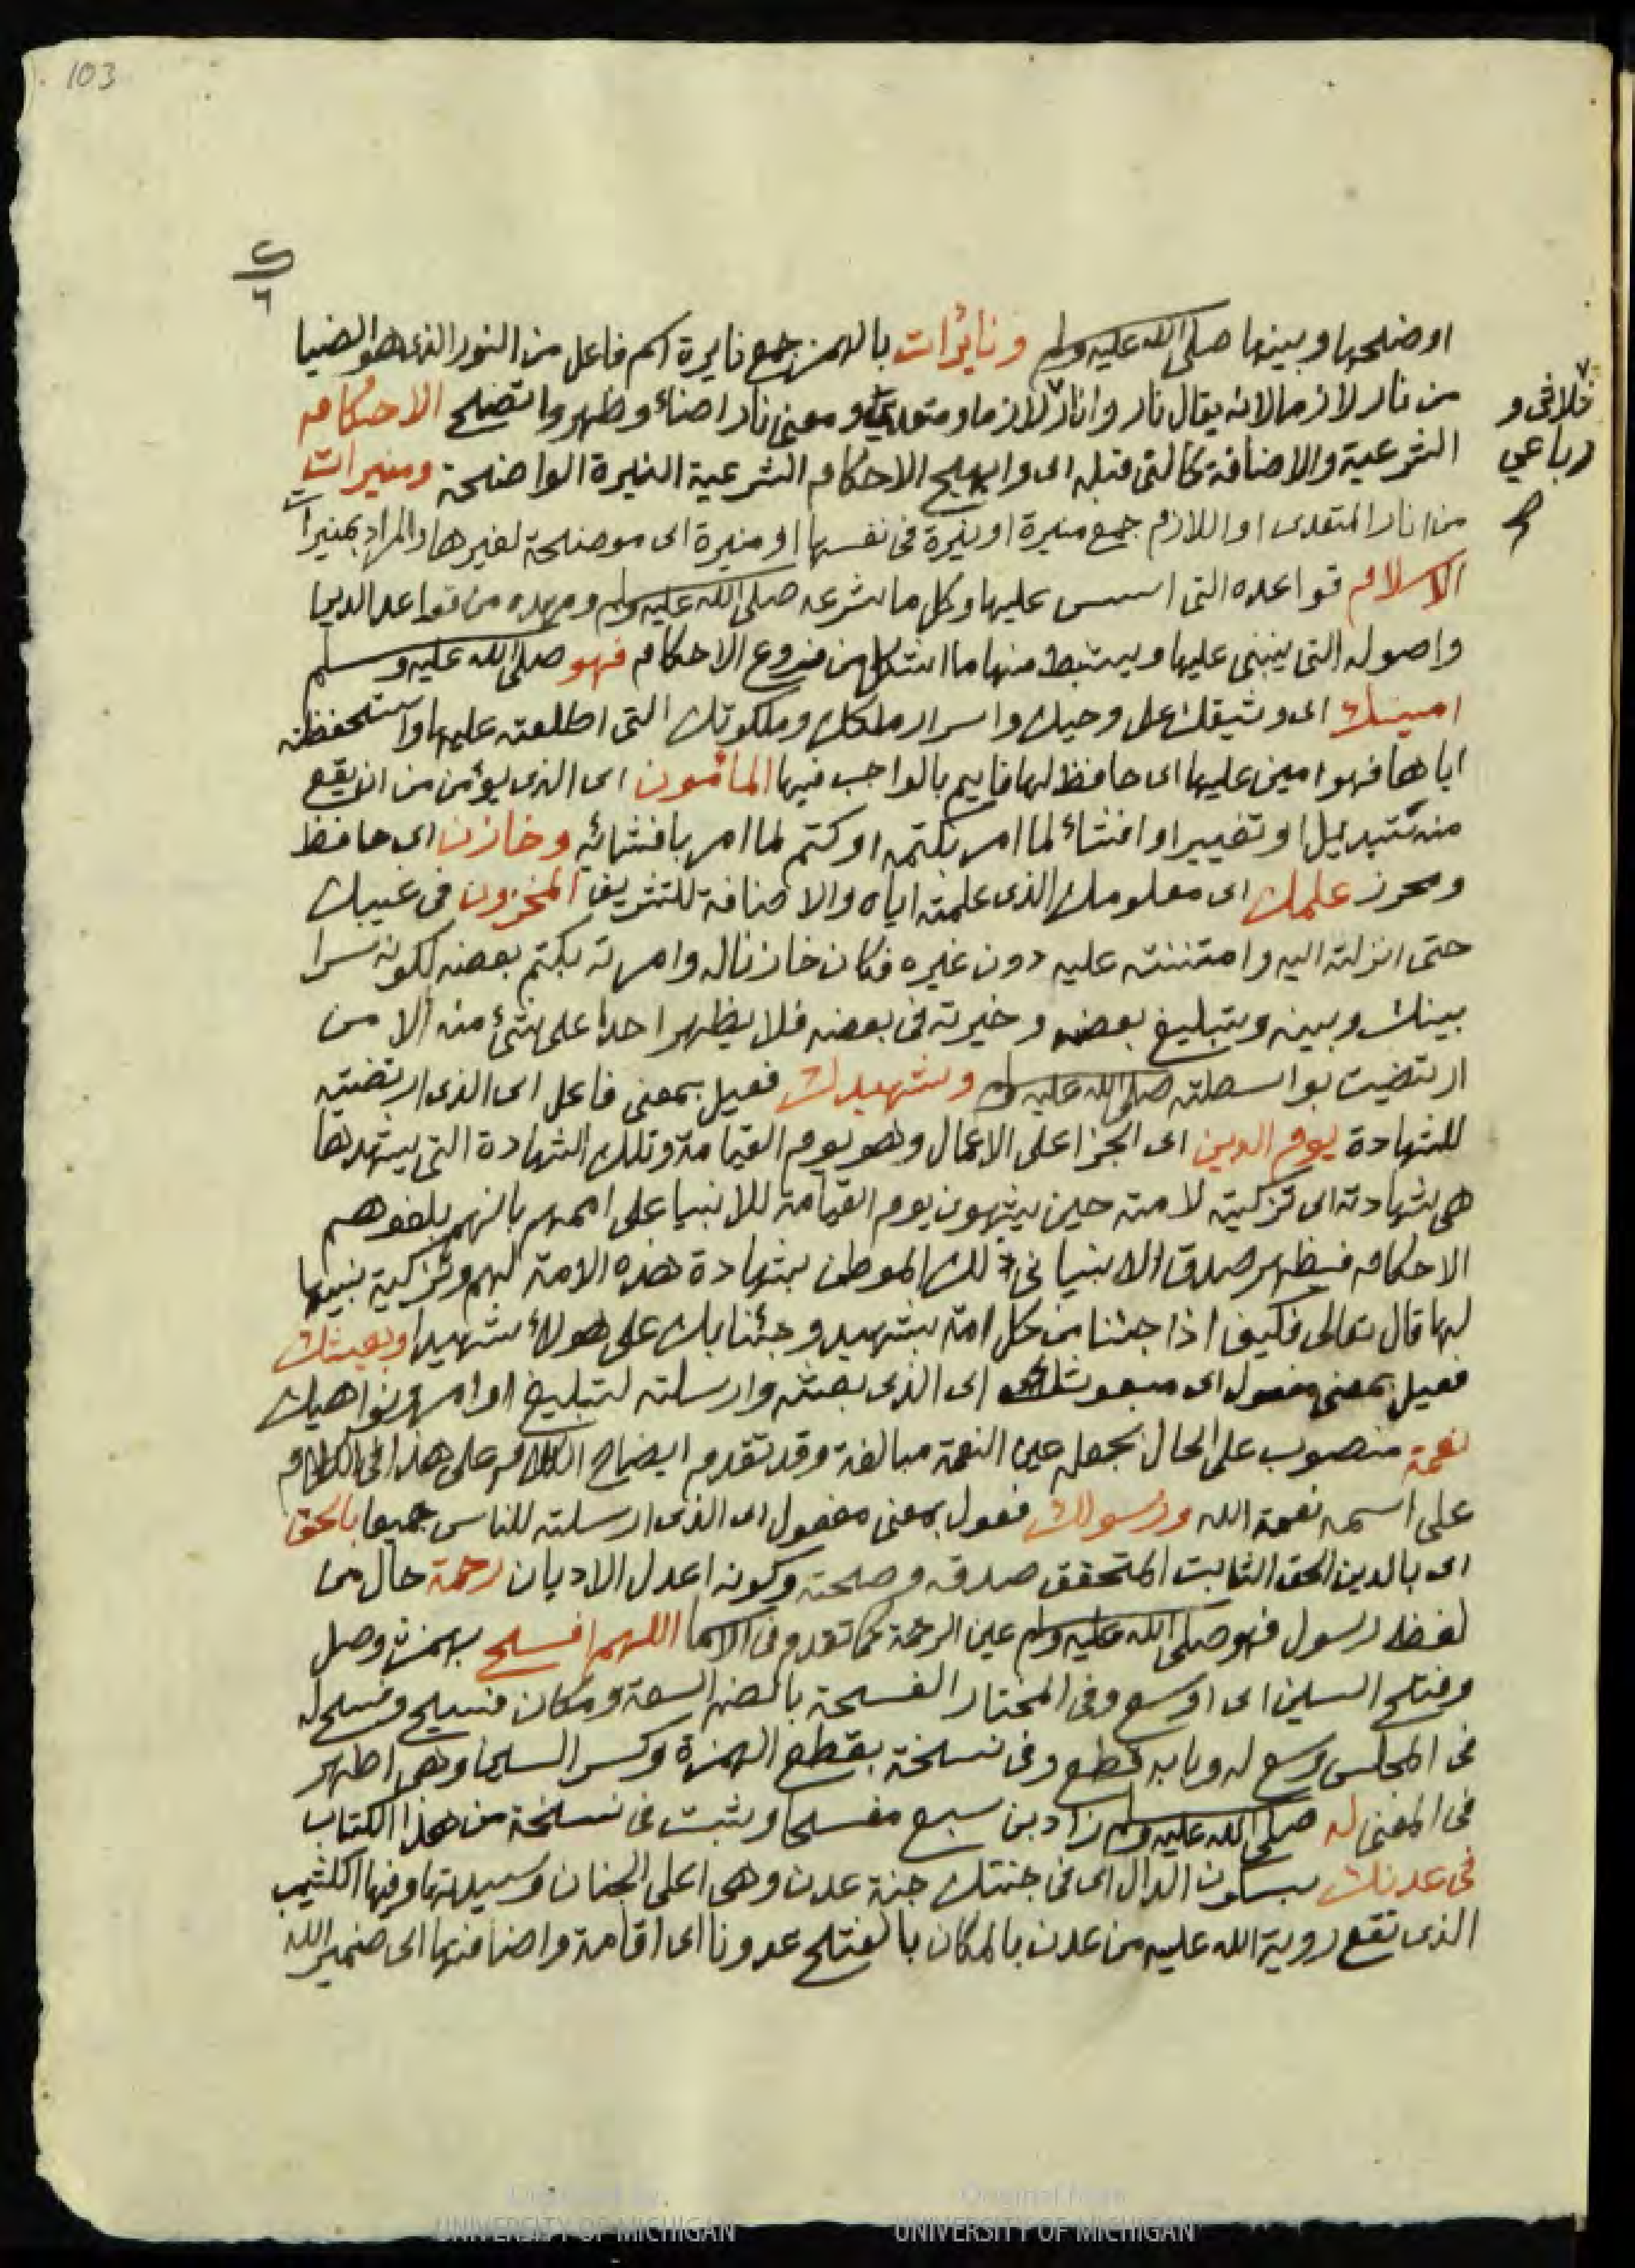 103
اوضحها وبينها صلى الله عليه وسلم ونائرات بالهمز جمع نايرة اسم فاعل من النور الذى هو الضيا
من نار لازما لانه يقال نار وانار لازما ومتعديا ومعنى نار اضاء وظهر واتضح الاحكام
ثلاثى و
رباعي
الشرعية والاضافة كالتى قبله اى وابهج الاحكام الشرعية النيرة الواضحة ومنيرات
من انار المتعدى او اللازم جمع منيرة او نيرة فى نفسها او منيرة اى موضحة لغيرها والمراد بمنيرات
الاسلام قواعده التى اسس عليها وكل ما شرعه صلى الله عليه وسلم ومهده من قواعد الدين
واصوله التى ينبنى عليها ويستنبط منها ما اشكل من فروع الاحكام فهو صلى الله عليه وسلم
امينك اى وثيقك على وحيك واسرار ملكك وملكوتك التى اطلعته عليها واستحفظته
اياها فهو امين عليها اى حافظ لها قايم بالواجب فيها المأمون اى الذى يؤمن من ان يقع
منه تبديل او تغيير او افشاء لما امر بكتمه او كتم لما امر بافشائه وخازن اى حافظ
ومحرز علمك اى معلومك الذى علمته اياه والاضافة للتشريف المخزون فى غيبك
حتى انزلته اليه وامتننت عليه دون غيره فكان خازنا له وامرته بكتم بعضه لكونه سرا
بينك وبينه وبتبليغ بعضه وخيرته فى بعضه فلا يظهر احدا على شئ منه الا من
ارتضيت بواسطته صلى الله عليه وسلم وشهيدك فعيل بمعنى فاعل اى الذى ارتضيته
للشهادة يوم الدين اى الجزا على الاعمال وهو يوم القيامة وتلك الشهادة التى يشهدها
هى شهادته اى تزكيته لامته حين يشهدون يوم القيامة للانبيا على اممهم بانهم بلغوهم
الاحكام فيظهر صدق الانبيا فى ذلك الموطن بشهادة هذه الامة لهم وتزكية نبيها
لها قال تعالى فكيف اذا جئنا من كل امة بشهيد وجئنا بك على هولاء شهيدا وبعيثك
فعيل بمعنى مفعول اى مبعوثك اى الذى بعثته وارسلته لتبليغ اوامرك ونواهيك
نعمة منصوب على الحال بجعله عين النعمة مبالغة وقد تقدم ايضاح الكلام على هذا فى الكلام
على اسمه نعمة الله ورسولك فعول بمعنى مفعول اى الذى ارسلته للناس جميعا بالحق
اى بالدين الحق الثابت المتحقق صدقه وصحته وكونه اعدل الاديان رحمة حال من
لفظ رسول فهو صلى الله عليه وسلم عين الرحمة كما تقدم فى الاسما اللهم افسح بهمزة وصل
وفتح السين اى اوسع وفى المختار الفسحة بالضم السعة ومكان فسيح وفسح له
فى المجلس وسع له وبابه قطع وفى نسخة بقطع الهمزة وكسر السين وهى اظهر
فى المعنى له صلى الله عليه وسلم زاد بن سبع مفسحا وثبت فى نسخة من هذا الكتاب
فى عدنك بسكون الدال اى فى جنتك جنة عدن وهى اعلى الجنان وسيدتها وفيها الكثيب
الذى تقع روية الله عليه من عدن بالمكان بالفتح عدونا اى اقامة واضافتها الى ضمير الله
UNIVERSITY OF MICHIGAN
Original from
UNIVERSITY OF MICHIGAN